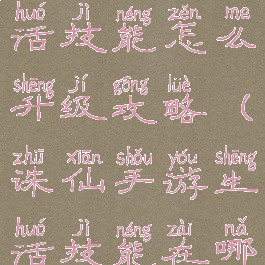 huó jì néng zěn me
活技能怎么
shēng jí gōng lüè
升级攻略(
zhū xiān shǒu yóu shēng
诛仙手游生
huó jì néng zài nǎ
活技能在哪